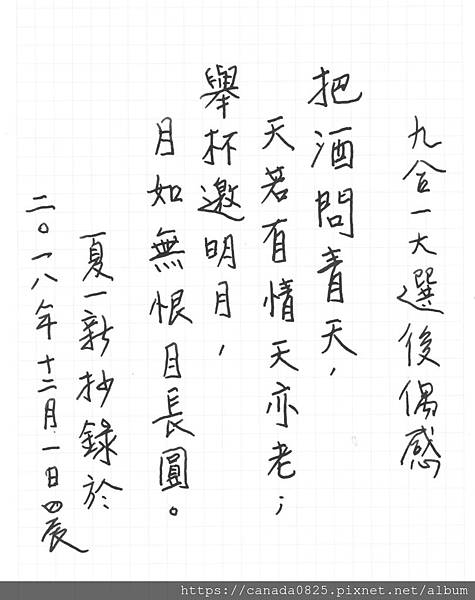 九合一大選後偶感
把酒問青天,
天若有情天亦老;
舉杯邀明月,
月如無恨月長圓。
夏一新抄錄於
二〇一八年十二月一日四辰
https://canada0825.pixnet.net/album